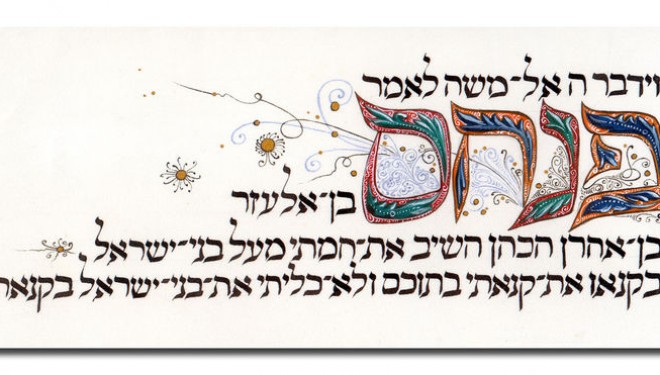 וידבר ה אל־משה לאמר
פנחס בן־אלעזר
בן־אהרן הכהן השיב את־חמתי מעל בני־ישראל
בקנאו את־קנאתי בתוכם ולא־כליתי את־בני־ישראל